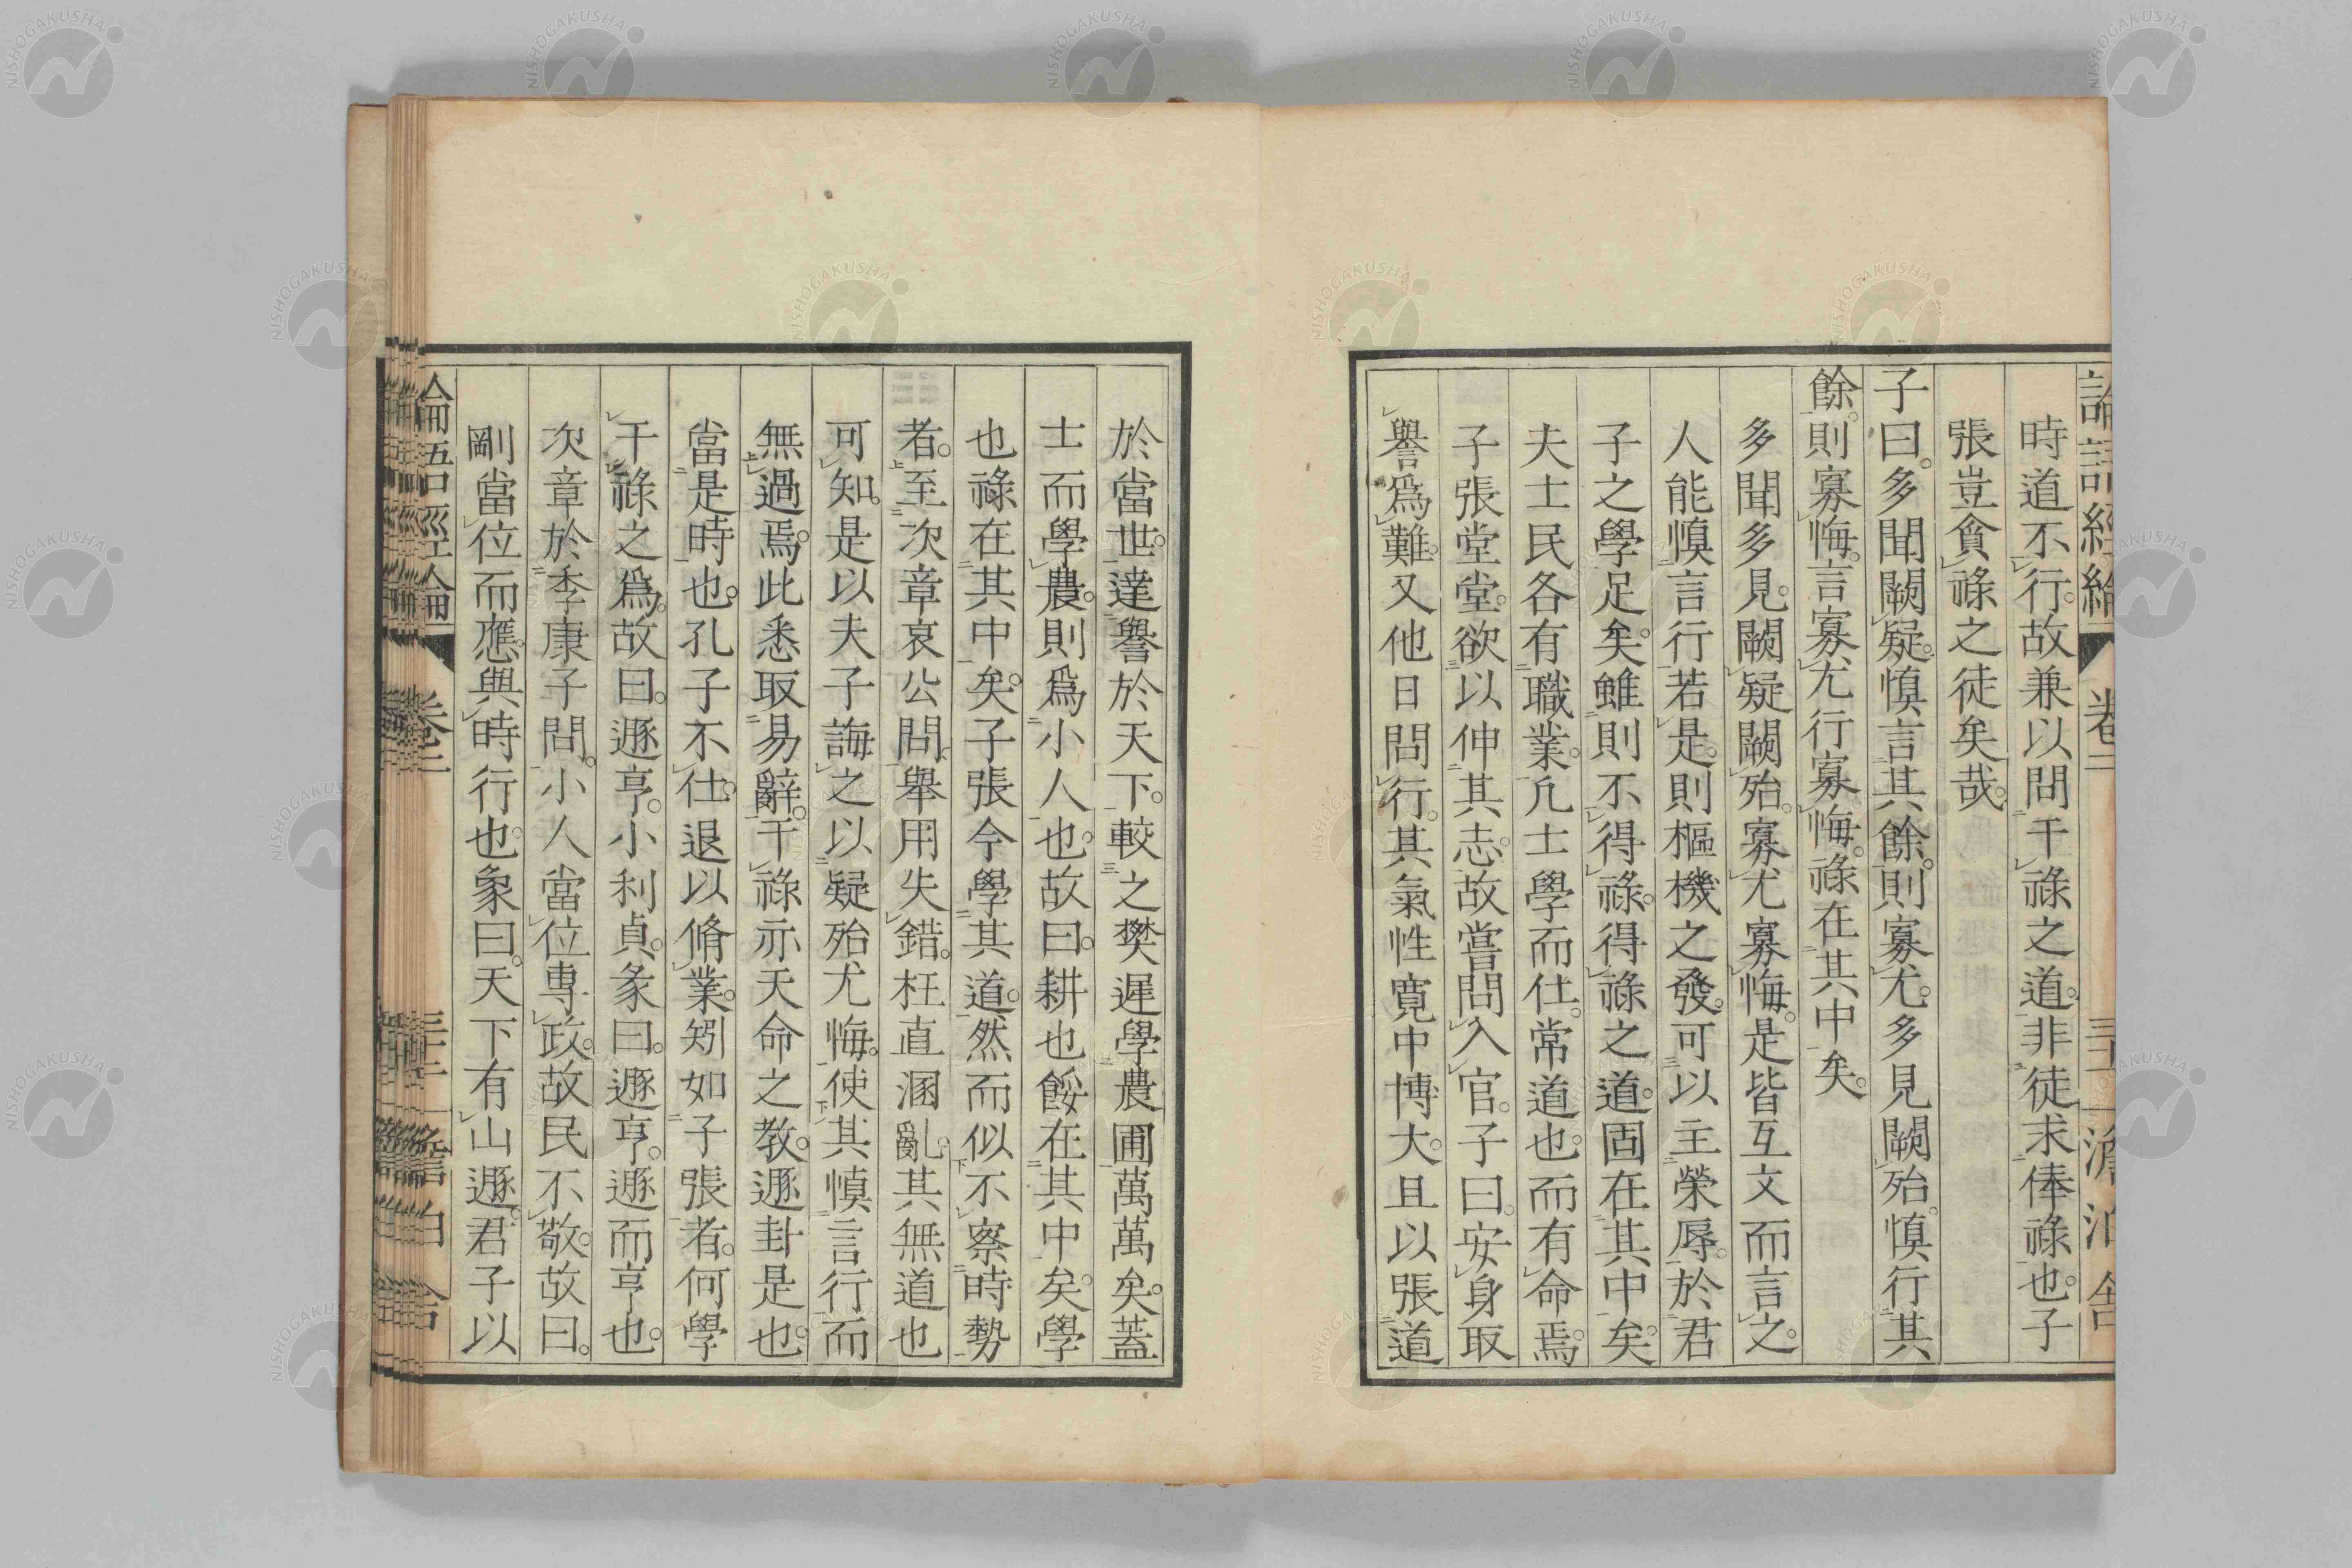 時道不行。故兼以問干祿之道。非徒求俸祿也。子
張豈貪祿之徒矣哉。
子曰。多聞闕疑。慎言其餘。則寡尤。多見闕殆。慎行其
餘。則寡悔。言寡尤行寡悔。祿在其中矣。
多聞多見。闕疑闕殆。寡尤寡悔。是皆互文而言之。
人能慎言行若是。則樞機之發。可以主榮辱。於君
子之學足矣。雖則不得祿。得祿之道。固在其中矣。
夫士民各有職業。凡士學而仕。常道也。而有命焉。
子張堂堂。欲以伸其志。故嘗問入官。子曰。安身取
譽為難。又他日問行。其氣性寬中博大。且以張道
於當世。達譽於天下。較之樊遲學農圃萬萬矣。蓋
士而學農。則為小人也。故曰。耕也餒在其中矣。學
也祿在其中矣。子張今學其道。然而似不察時勢
者。至次章哀公問。舉用失錯。枉直溷亂。其無道也
可知。是以夫子誨之以疑殆尤悔。使其慎言行而
無過焉。此悉取易辭。干祿亦天命之教。遯卦是也。
當是時也。孔子不仕。退以脩業。矧如子張者。何學
干祿之為。故曰。遯亨。小利貞。彖曰。遯亨。遯而亨也。
次章於季康子問。小人當位專政。故民不敬。故曰。
剛當位而應。與時行也。象曰。天下有山遯。君子以
論語經綸
卷二
澹泊舍
NISHOGAKUSHA